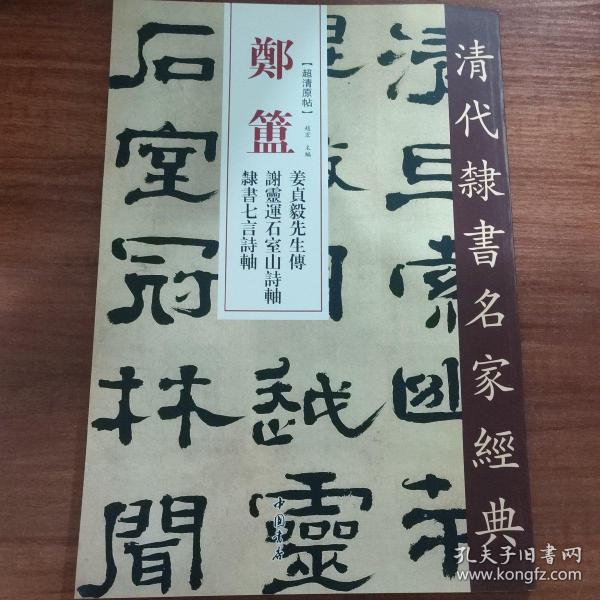 清代隸書名家經典
【超清原帖】
趙宏 主編
鄭簠
姜貞毅先生傳
謝靈運石室山詩軸
隸書七言詩軸
清旦索幽
越靈
石室冠林聞
中国书店
孔夫子旧书网
www.kongfz.com